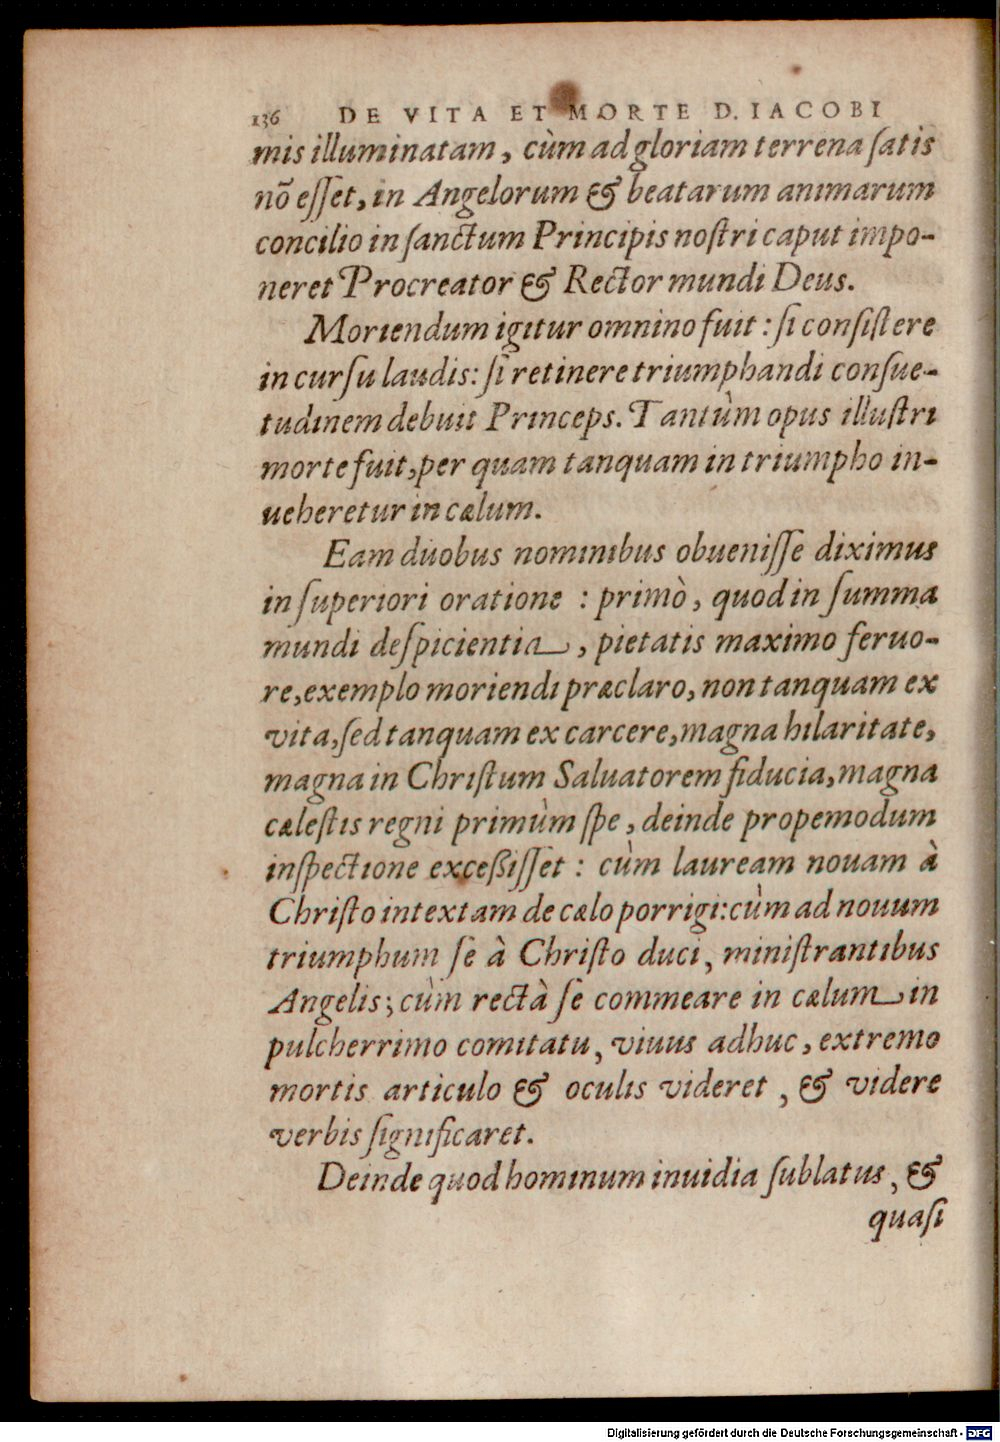 136 DE VITA ET MORTE D. IACOBI
mis illuminatam, cùm ad gloriam terrena ſatis
nō eſſet, in Angelorum & beatarum animarum
concilio in ſanctum Principis noſtri caput impo-
neret Procreator & Rector mundi Deus.
Moriendum igitur omnino fuit : ſi conſiſtere
in curſu laudis: ſi retinere triumphandi conſue-
tudinem debuit Princeps. Tantùm opus illuſtri
morte fuit, per quam tanquam in triumpho in-
ueheretur in cælum.
Eam duobus nominibus obueniſſe diximus
in ſuperiori oratione : primò, quod in ſumma
mundi deſpicientia, pietatis maximo feruo-
re, exemplo moriendi præclaro, non tanquam ex
vita, ſed tanquam ex carcere, magna hilaritate,
magna in Chriſtum Saluatorem fiducia, magna
cæleſtis regni primùm ſpe, deinde propemodum
inſpectione exceßiſſet : cùm lauream nouam à
Chriſto intextam de cælo porrigi: cùm ad nouum
triumphum ſe à Chriſto duci, miniſtrantibus
Angelis; cùm rectà ſe commeare in cælum in
pulcherrimo comitatu, viuus adhuc, extremo
mortis articulo & oculis videret, & videre
verbis ſignificaret.
Deinde quod hominum inuidia ſublatus, &
quaſi
Digitalisierung gefördert durch die Deutsche Forschungsgemeinschaft - DFG